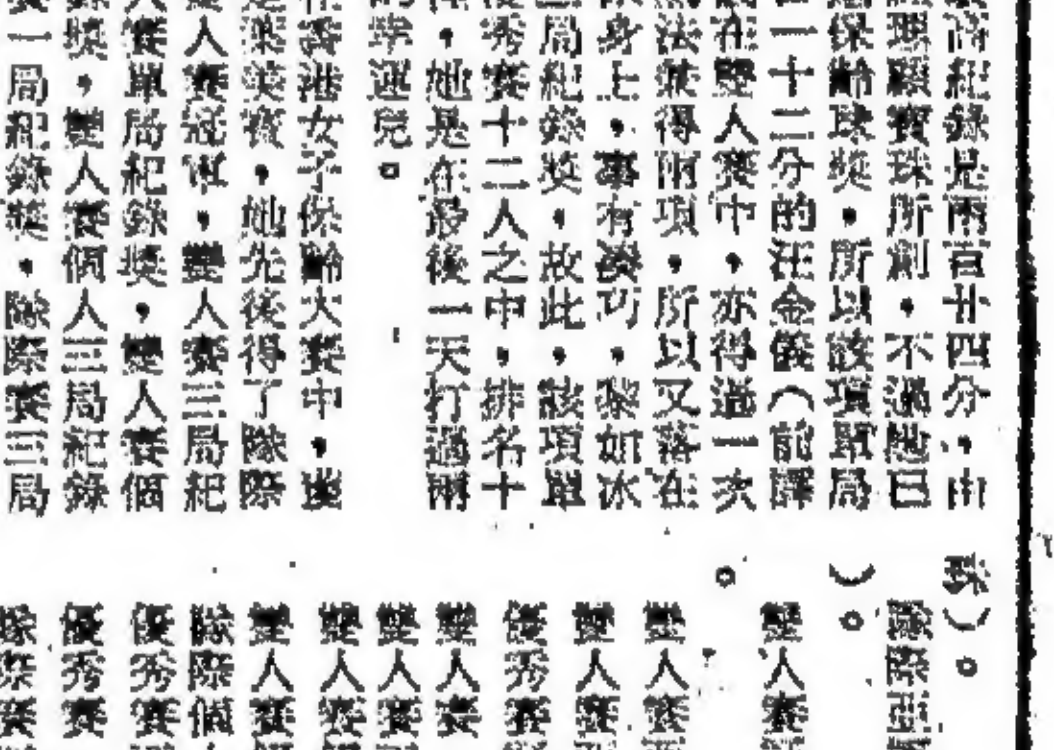 紀錄是兩百廿四分，由
賽珠所創，不過她已
保齡球獎，所以該項單局
一十二分的汪金儀（前譯
在雙人賽中，亦得過一次
法兼得兩項，所以又落在
身上，事有湊巧，黎如冰
局紀錄獎，故此，該項單
秀賽十二人之中，排名十
，她是在最後一天打過兩
運兒。
香港女子保齡大賽中，
賽，她先後得了隊際
人賽冠軍，雙人賽三局紀
賽單局紀錄獎，雙人賽個
獎，雙人賽個人三局紀錄
一局紀錄獎，隊際賽三局
珠）。
隊際
）。
雙人賽
。
雙人賽
雙人賽
優秀賽
雙人賽
雙人賽
雙人賽
雙人賽
隊際個
優秀賽
優秀賽
隊際賽